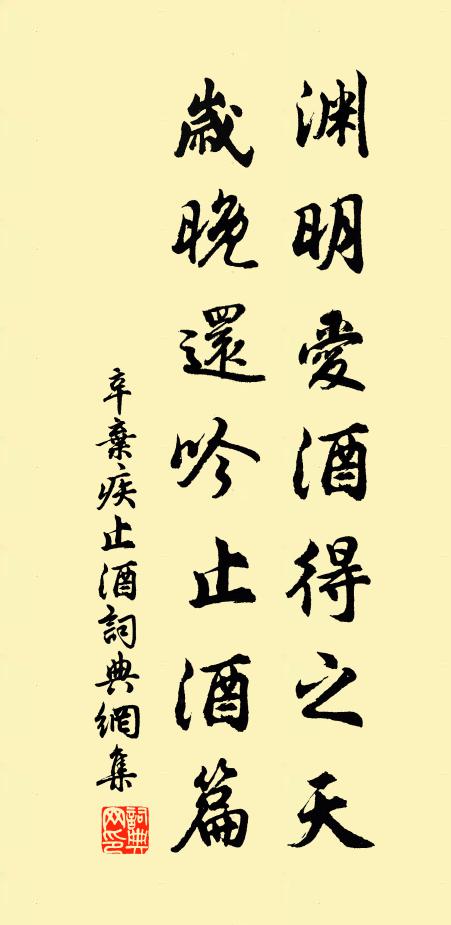 渊明愛酒得之天
歲晚還吟止酒篇
辛棄疾止酒詞典網集
詞典网印